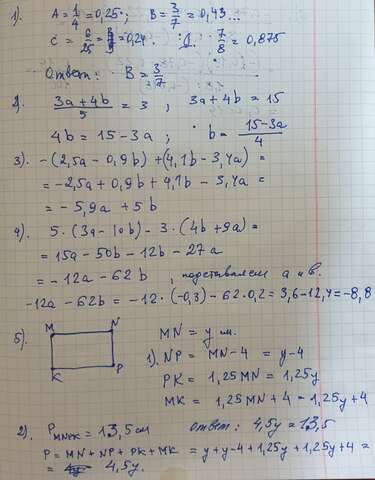 1). A = 1/4 = 0,25; B = 3/7 = 0,43...
C = 6/25 = 0,24. D. 7/8 = 0,875
Ответ: B = 3/7
2). (3a + 4b)/5 = 3, 3a + 4b = 15
4b = 15 - 3a; b = (15 - 3a)/4
3). -(2,5a - 0,9b) + (4,1b - 3,4a) =
= -2,5a + 0,9b + 4,1b - 3,4a =
= -5,9a + 5b
4). 5·(3a - 10b) - 3·(4b + 9a) =
= 15a - 50b - 12b - 27a
= -12a - 62b, подставляем a и b.
-12a - 62b = -12·(-0,3) - 62·0,2 = 3,6 - 12,4 = -8,8
5). M N
K P
MN = y см.
1). NP = MN - 4 = y - 4
PK = 1,25MN = 1,25y
MK = 1,25MN + 4 = 1,25y + 4
2). P MNPK = 13,5 см ответ: 4,5y = 13,5
P = MN + NP + PK + MK = y + y - 4 + 1,25y + 1,25y + 4 =
= 4,5y.